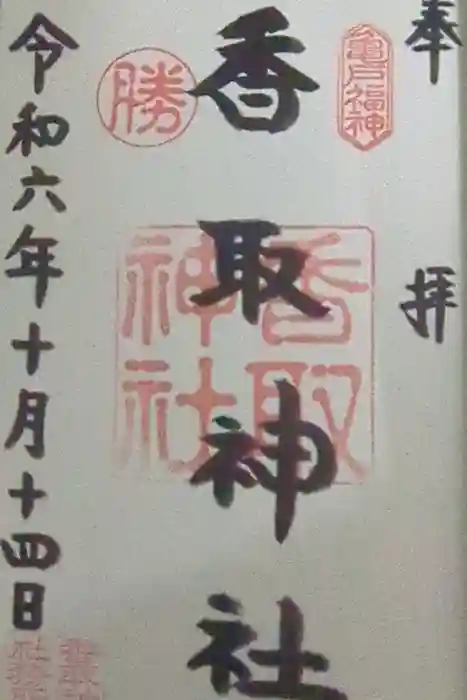 奉拝
亀戸福神
香取神社
香取神社
勝
令和六年十月十四日